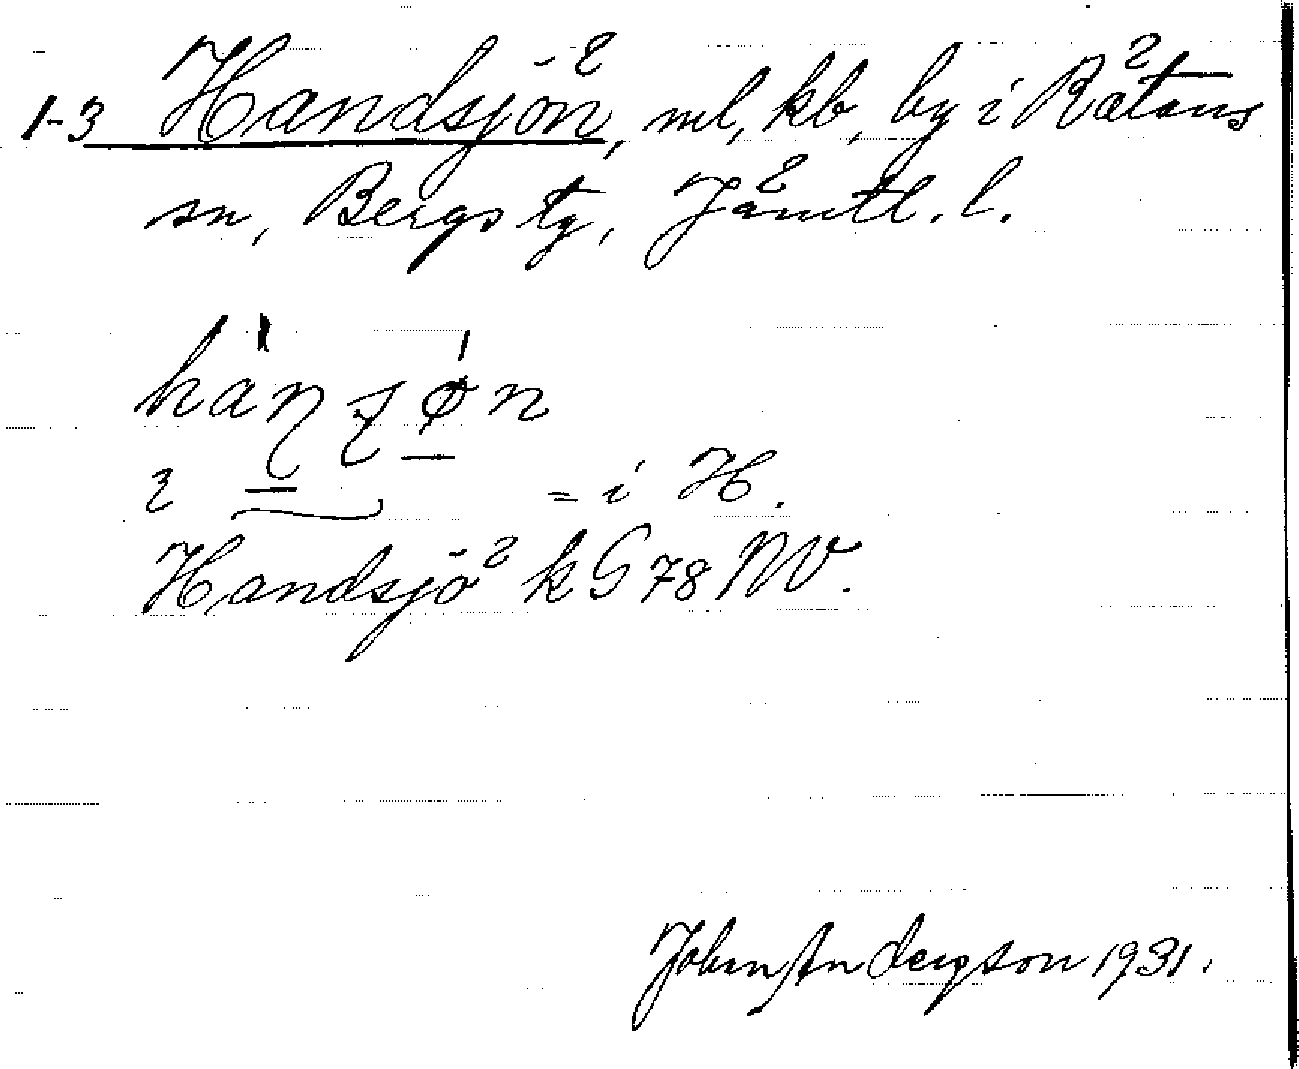 1-3 Handsjön, ml, kb, by i Rätans
sn, Bergs tg, Jämtl. l.
= i H.
Handsjö k G 78 NV.
John Andersson 1931.